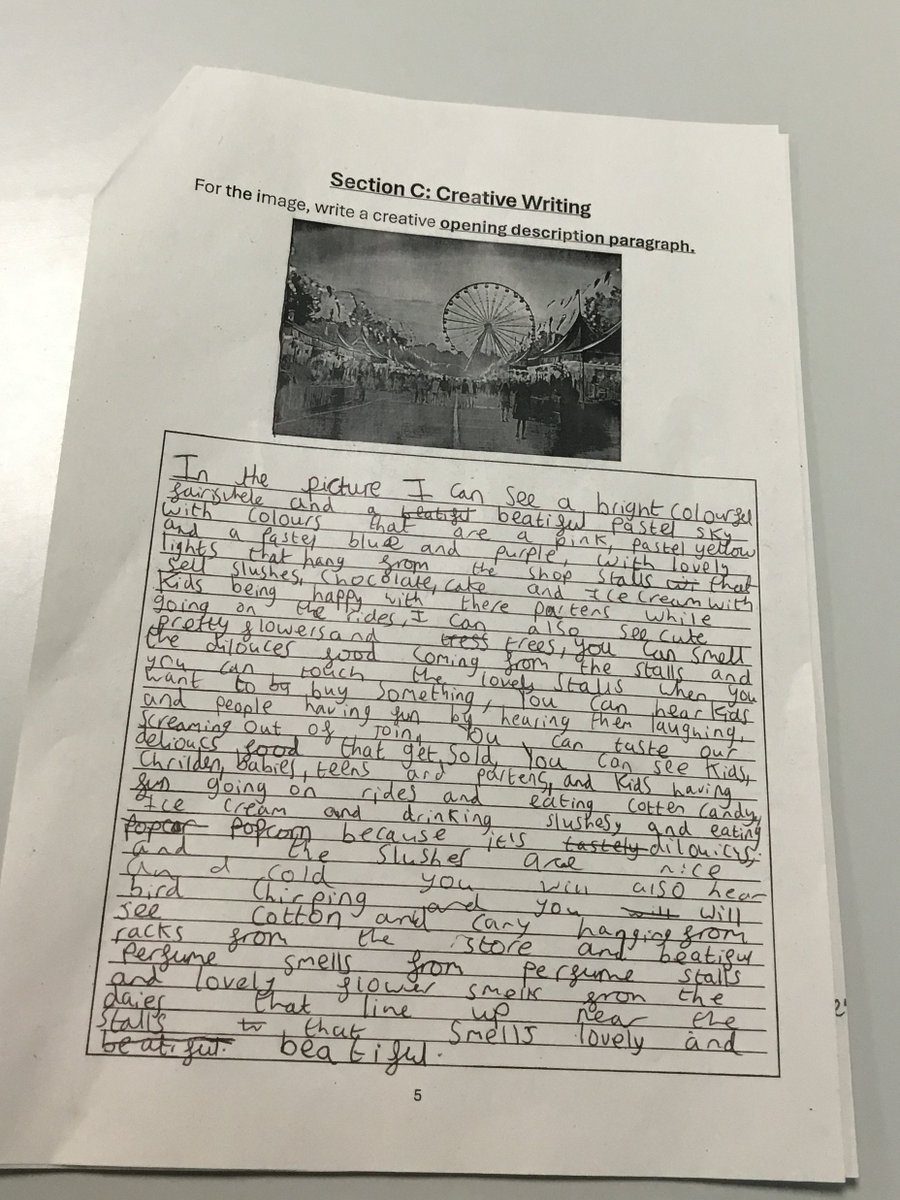 Section C: Creative Writing
For the image, write a creative opening description paragraph.
In the picture I can see a bright colourful
fairswhele and a beatiful beatiful pastel sky
with colours that are a pink, pastel yellow
and a pastel blue and purple, with lovely
lights that hang from the shop stalls that
sell slushes, chocolate, cake and Ice cream with
Kids being happy with there partens while
going on the rides, I can also see cute
pretty flowers and tress trees, you can smell
the dilouces food coming from the stalls and
you can touch the lovely stalls when you
want to by buy something, You can hear kids
and people having fun by hearing them laughing,
screaming out of join, You can taste our
delioucs food that get sold, You can see kids,
Chrilden, babies, teens and partens, and kids having
fun going on rides and eating cotten candy,
Ice cream and drinking slushesy and eating
Popcor Popcorn because it's tastely dilouicys,
and the slushes are nice
and cold you will also hear
bird chirping and you will will
see cotton and cany hanging from
racks from the store and beatiful
perfume smells from perfume stalls
and lovely flower smells fron the
daies that line up near the
stalls to, that smells lovely and
beatiful. beatiful.
5